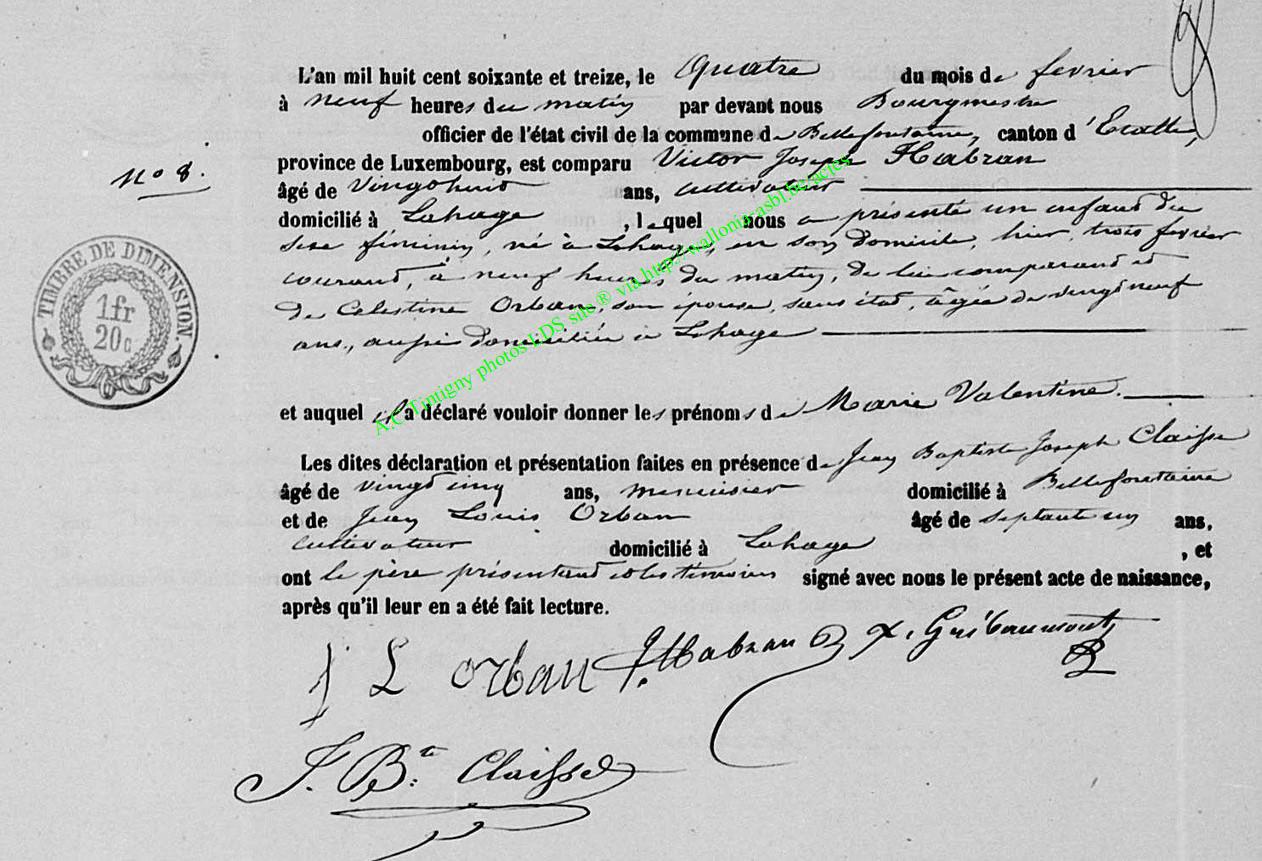 L'an mil huit cent soixante et treize, le Quatre du mois de fevrier
à neuf heures du matin par devant nous Bourgmestre
officier de l'état civil de la commune de Bellefontaine, canton d'Etalle,
province de Luxembourg, est comparu Victor Joseph Habran
N° 8.
âgé de Vingt huit ans, cultivateur
domicilié à Lahage, lequel nous a présenté un enfant du
sexe féminin, né à Lahage, en son domicile, hier, trois fevrier
courant, à neuf heures du matin, de lui comparant et
de Celestine Orban, son épouse, sans état, âgée de vingt neuf
ans, aussi domiciliée à Lahage
et auquel il a déclaré vouloir donner les prénoms de Marie Valentine.
Les dites déclaration et présentation faites en présence de Jean Baptiste Joseph Claisse
âgé de vingt cinq ans, menuisier domicilié à Bellefontaine
et de Jean Louis Orban âgé de septante un ans,
cultivateur domicilié à Lahage, et
ont le père présentant et les témoins signé avec nous le présent acte de naissance,
après qu'il leur en a été fait lecture.
J L orban J. Habran X. Gribaumont
J. Bte Claisse
TIMBRE DE DIMENSION.
1 fr
20 c
A.C. Tintigny photos LDS site ® via http://wallonia.asbl.be/actes